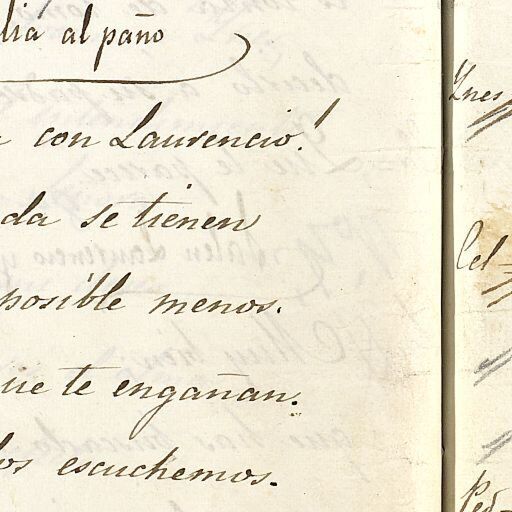 lia al paño
con Laurencio!
da se tienen
posible menos.
ue te engañan.
los escuchemos.
Ynes
Cel
Ped